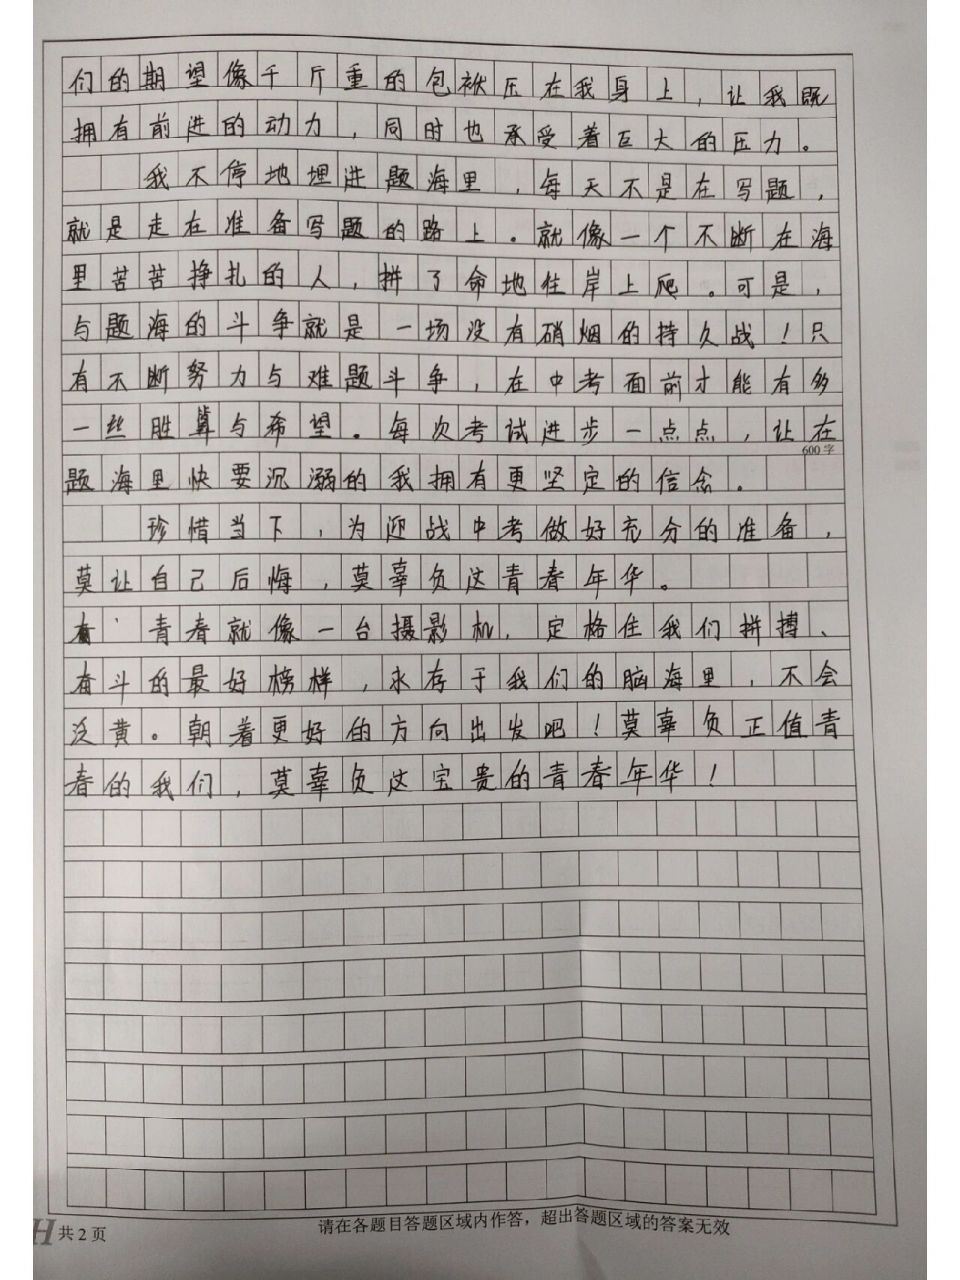 们的期望像千斤重的包袱压在我身上，让我既
拥有前进的动力，同时也承受着巨大的压力。
我不停地埋进题海里，每天不是在写题，
就是走在准备写题的路上。就像一个不断在海
里苦苦挣扎的人，拼了命地往岸上爬。可是，
与题海的斗争就是一场没有硝烟的持久战！只
有不断努力与难题斗争，在中考面前才能有多
一丝胜算与希望。每次考试进步一点点，让在
600字
题海里快要沉溺的我拥有更坚定的信念。
珍惜当下，为迎战中考做好充分的准备，
莫让自己后悔，莫辜负这青春年华。
青春就像一台摄影机，定格住我们拼搏、
奋斗的最好榜样，永存于我们的脑海里，不会
泛黄。朝着更好的方向出发吧！莫辜负正值青
春的我们，莫辜负这宝贵的青春年华！
共2页
请在各题目答题区域内作答，超出答题区域的答案无效